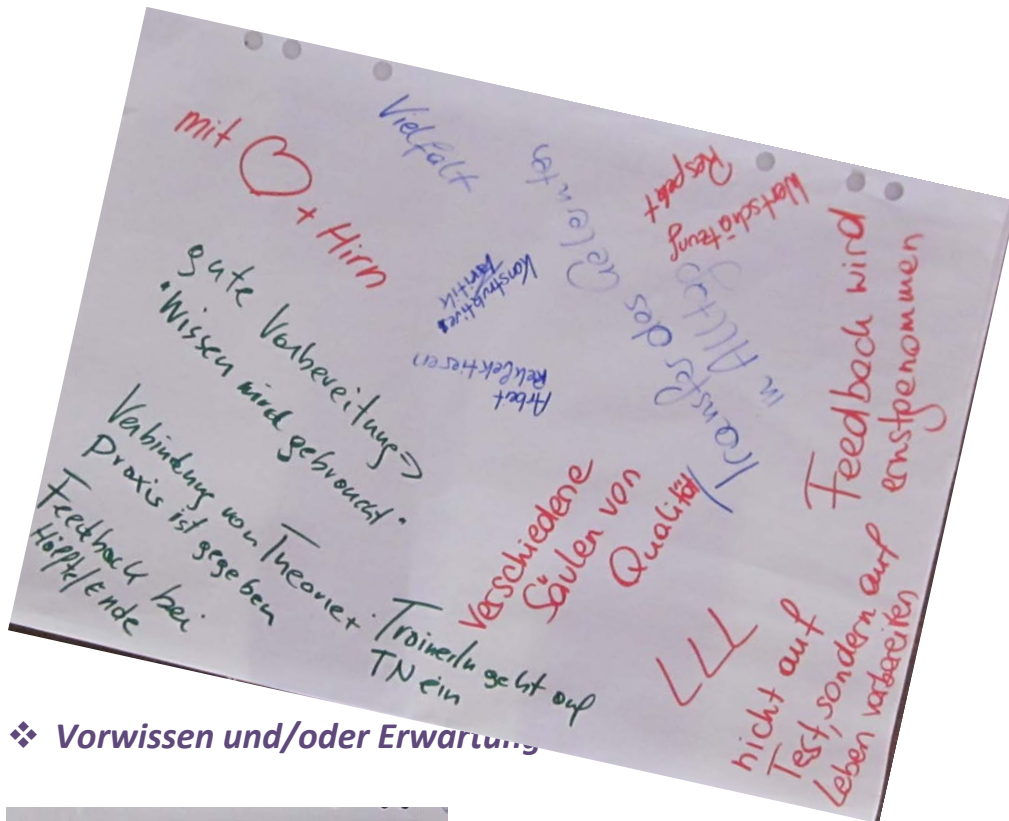 mit ♡ + Hirn
Vielfalt
gute Vorbereitung =>
"Wissen wird gebraucht"
Verbindung von Theorie +
Praxis ist gegeben
Feedback bei
Hälfte/Ende
TrainerIn geht auf
TN ein
Konstruktive
Kritik
Arbeit
Reflektieren
Transfer des Gelernten
im Alltag
Respekt
Wertschätzung
Verschiedene
Säulen von
Qualität
Feedback wird
ernstgenommen
LLL
nicht auf
Test, sondern auf
Leben vorbereiten
❖ Vorwissen und/oder Erwartung